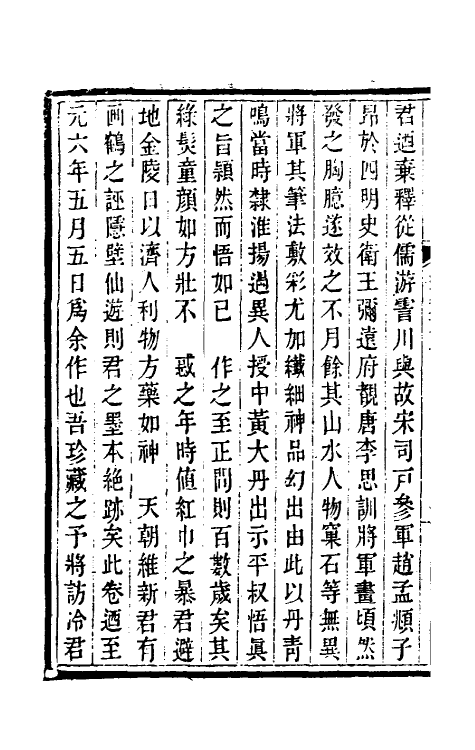 君迺棄釋從儒游霅川與故宋司戶參軍趙孟頫子
昂於四明史衛王彌遠府覩唐李思訓將軍畫頃然
發之胸臆遂效之不月餘其山水人物窠石等無異
將軍其筆法敷彩尤加纖細神品幻出由此以丹青
鳴當時隸淮揚過異人授中黃大丹出示平叔悟眞
之旨頴然而悟如已　作之至正間則百數歲矣其
綠髮童顏如方壯不　惑之年時値紅巾之暴君避
地金陵日以濟人利物方藥如神　天朝維新君有
画鶴之誣隱壁仙遊則君之墨本絶跡矣此卷迺至
元六年五月五日爲余作也吾珍藏之予將訪冷君